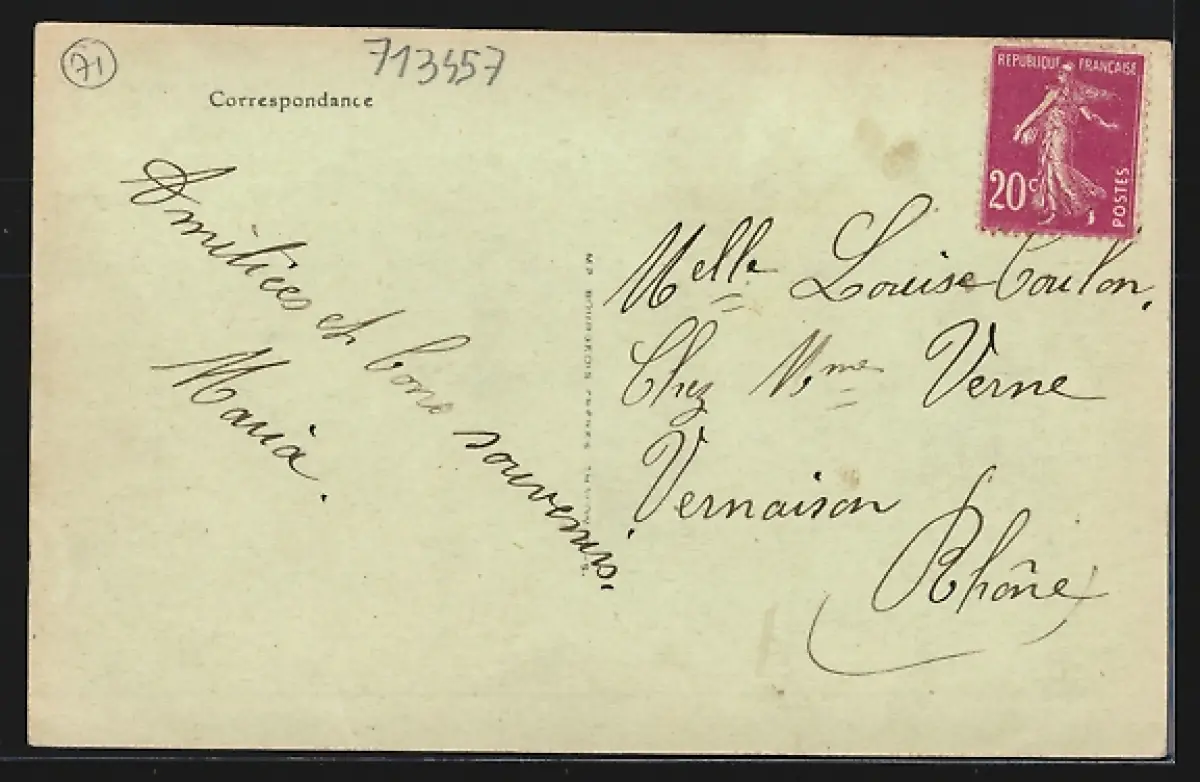 71
713457
Correspondance
REPUBLIQUE FRANÇAISE
20c
POSTES
Amitiées et bons souvenirs.
Maria.
Melle Louise Coulon.
Chez Mme Verne
Vernaison
Rhône
BOURGEOIS FRERES